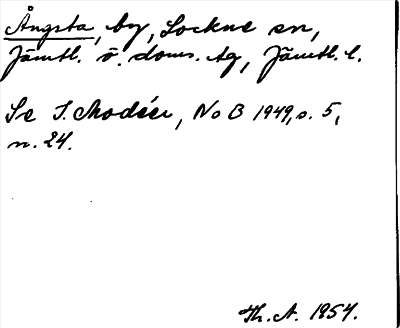 Ångsta, by, Lockne sn,
Jämtl. ö. doms. tg, Jämtl. l.
Se I. Modéer, NoB 1949, s. 5,
n. 24.
Th. A. 1954.